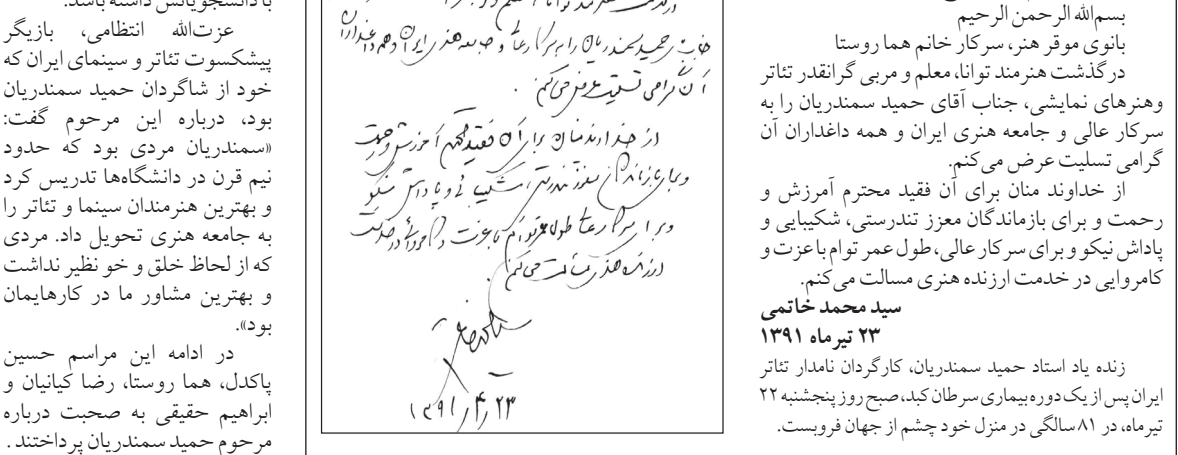 بسم‌الله الرحمن الرحیم
بانوی موقر هنر، سرکار خانم هما روستا
درگذشت هنرمند توانا، معلم و مربی گرانقدر تئاتر
وهنرهای نمایشی، جناب آقای حمید سمندریان را به
سرکار عالی و جامعه هنری ایران و همه داغداران آن
گرامی تسلیت عرض می‌کنم.
از خداوند منان برای آن فقید محترم آمرزش و
رحمت و برای بازماندگان معزز تندرستی، شکیبایی و
پاداش نیکو و برای سرکار عالی، طول عمر توام با عزت و
کامروایی در خدمت ارزنده هنری مسالت می‌کنم.
سید محمد خاتمی
۲۳ تیر ماه ۱۳۹۱
زنده یاد استاد حمید سمندریان، کارگردان نامدار تئاتر
ایران پس از یک دوره بیماری سرطان کبد، صبح روز پنجشنبه ۲۲
تیرماه، در ۸۱ سالگی در منزل خود چشم از جهان فروبست.
جناب حمید سمندریان را به سرکار عالی و جامعه هنری ایران و همه داغداران
آن گرامی تسلیت عرض می‌کنم.
از خداوند منان برای آن فقید محترم آمرزش و رحمت
و برای بازماندگان معزز تندرستی، شکیبایی و پاداش نیکو
و برای سرکار عالی طول عمر توام با عزت و کامروایی در خدمت
ارزنده هنری مسالت می‌کنم.
۱۳۹۱/۴/۲۳
با دانشجویانش داشته باشد.
عزت‌الله انتظامی، بازیگر
پیشکسوت تئاتر و سینمای ایران که
خود از شاگردان حمید سمندریان
بود، درباره این مرحوم گفت:
«سمندریان مردی بود که حدود
نیم قرن در دانشگاه‌ها تدریس کرد
و بهترین هنرمندان سینما و تئاتر را
به جامعه هنری تحویل داد. مردی
که از لحاظ خلق و خو نظیر نداشت
و بهترین مشاور ما در کارهایمان
بود».
در ادامه این مراسم حسین
پاکدل، هما روستا، رضا کیانیان و
ابراهیم حقیقی به صحبت درباره
مرحوم حمید سمندریان پرداختند.